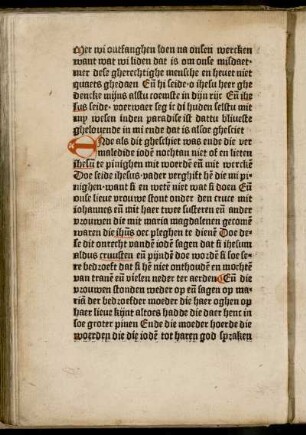 Mer wi ontfanghen loen na onsen wercken
want wat wi liden dat is om onse misdaet-
mer dese gherechtighe mensche en heuet niet
quaets ghedaen Eñ hi seide · o ihesu heer ghe
dencke mijns alstu coemste in dijn rijc Eñ ihe
sus seide · voerwaer seg ic di huden selstu mit
my wesen inden paradise ist dattu bliueste
ghelouende in mi ende dat is alsoe ghesciet
Ende als dit ghesciet was ende die ver
maledide iodē nochtan niet of en lieten
ihesū te pinighen mit woordē eñ mit wercke
Doe seide ihesus · vader verghift hē die mi pi
nighen · want si en wetē niet wat si doen Eñ
ons lieue vrouwe stont onder den cruce mit
iohannes eñ mit haer twee susteren eñ ander
vrouwen die mit maria magdalenen gecomē
waren die ihūs oec pleghen te dienē Doe de
se dit onrecht vandē iodē sagen dat si ihesum
aldus cruusten eñ pijndē doe wordē si soe se
re bedroeft dat si hē niet onthoudē en mochtē
van tranē eñ vielen neder ter aerden Eñ die
vrouwen stonden weder op eñ sagen op ma-
ria der bedroefder moeder die haer oghen op
haer lieue kijnt altoes hadde die daer henc in
soe groter pinen Ende die moeder hoerde die
woerden die die iodē tot haren god spraken